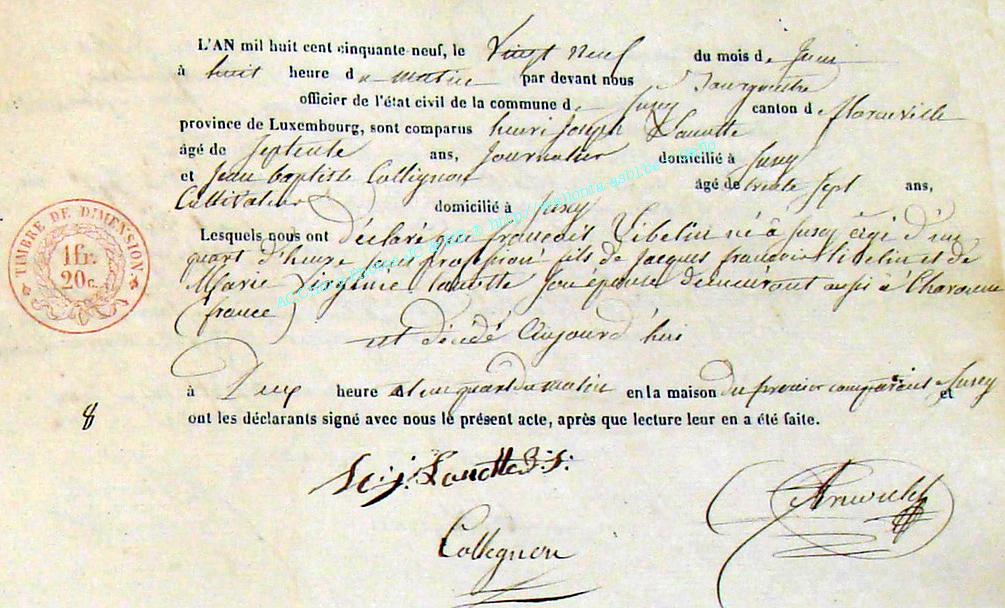 L'AN mil huit cent cinquante-neuf, le Vingt neuf du mois de Juin
à huit heure du matin par devant nous Bourgmestre
officier de l'état civil de la commune de Surey canton de
province de Luxembourg, sont comparus henri Joseph Lanotte
âgé de Septente ans, Journalier domicilié à Surey
et Jean baptiste Collignon âgé de trente Sept ans,
Cultivateur domicilié à Surey
Lesquels nous ont déclaré que françois Gibelin né à Surey âgé d'un
quart d'heure sans profession fils de Jacques françois Gibelin et de
Marie Virginie Lanotte son épouse demeurant aussi à
(france)
est décédé Aujourd'hui
à Deux heure et un quart du matin en la maison du premier comparant à Surey et
ont les déclarants signé avec nous le présent acte, après que lecture leur en a été faite.
8
TIMBRE DE DIMENSION
1 fr.
20 c.
h. j. Lanotte
Collignon